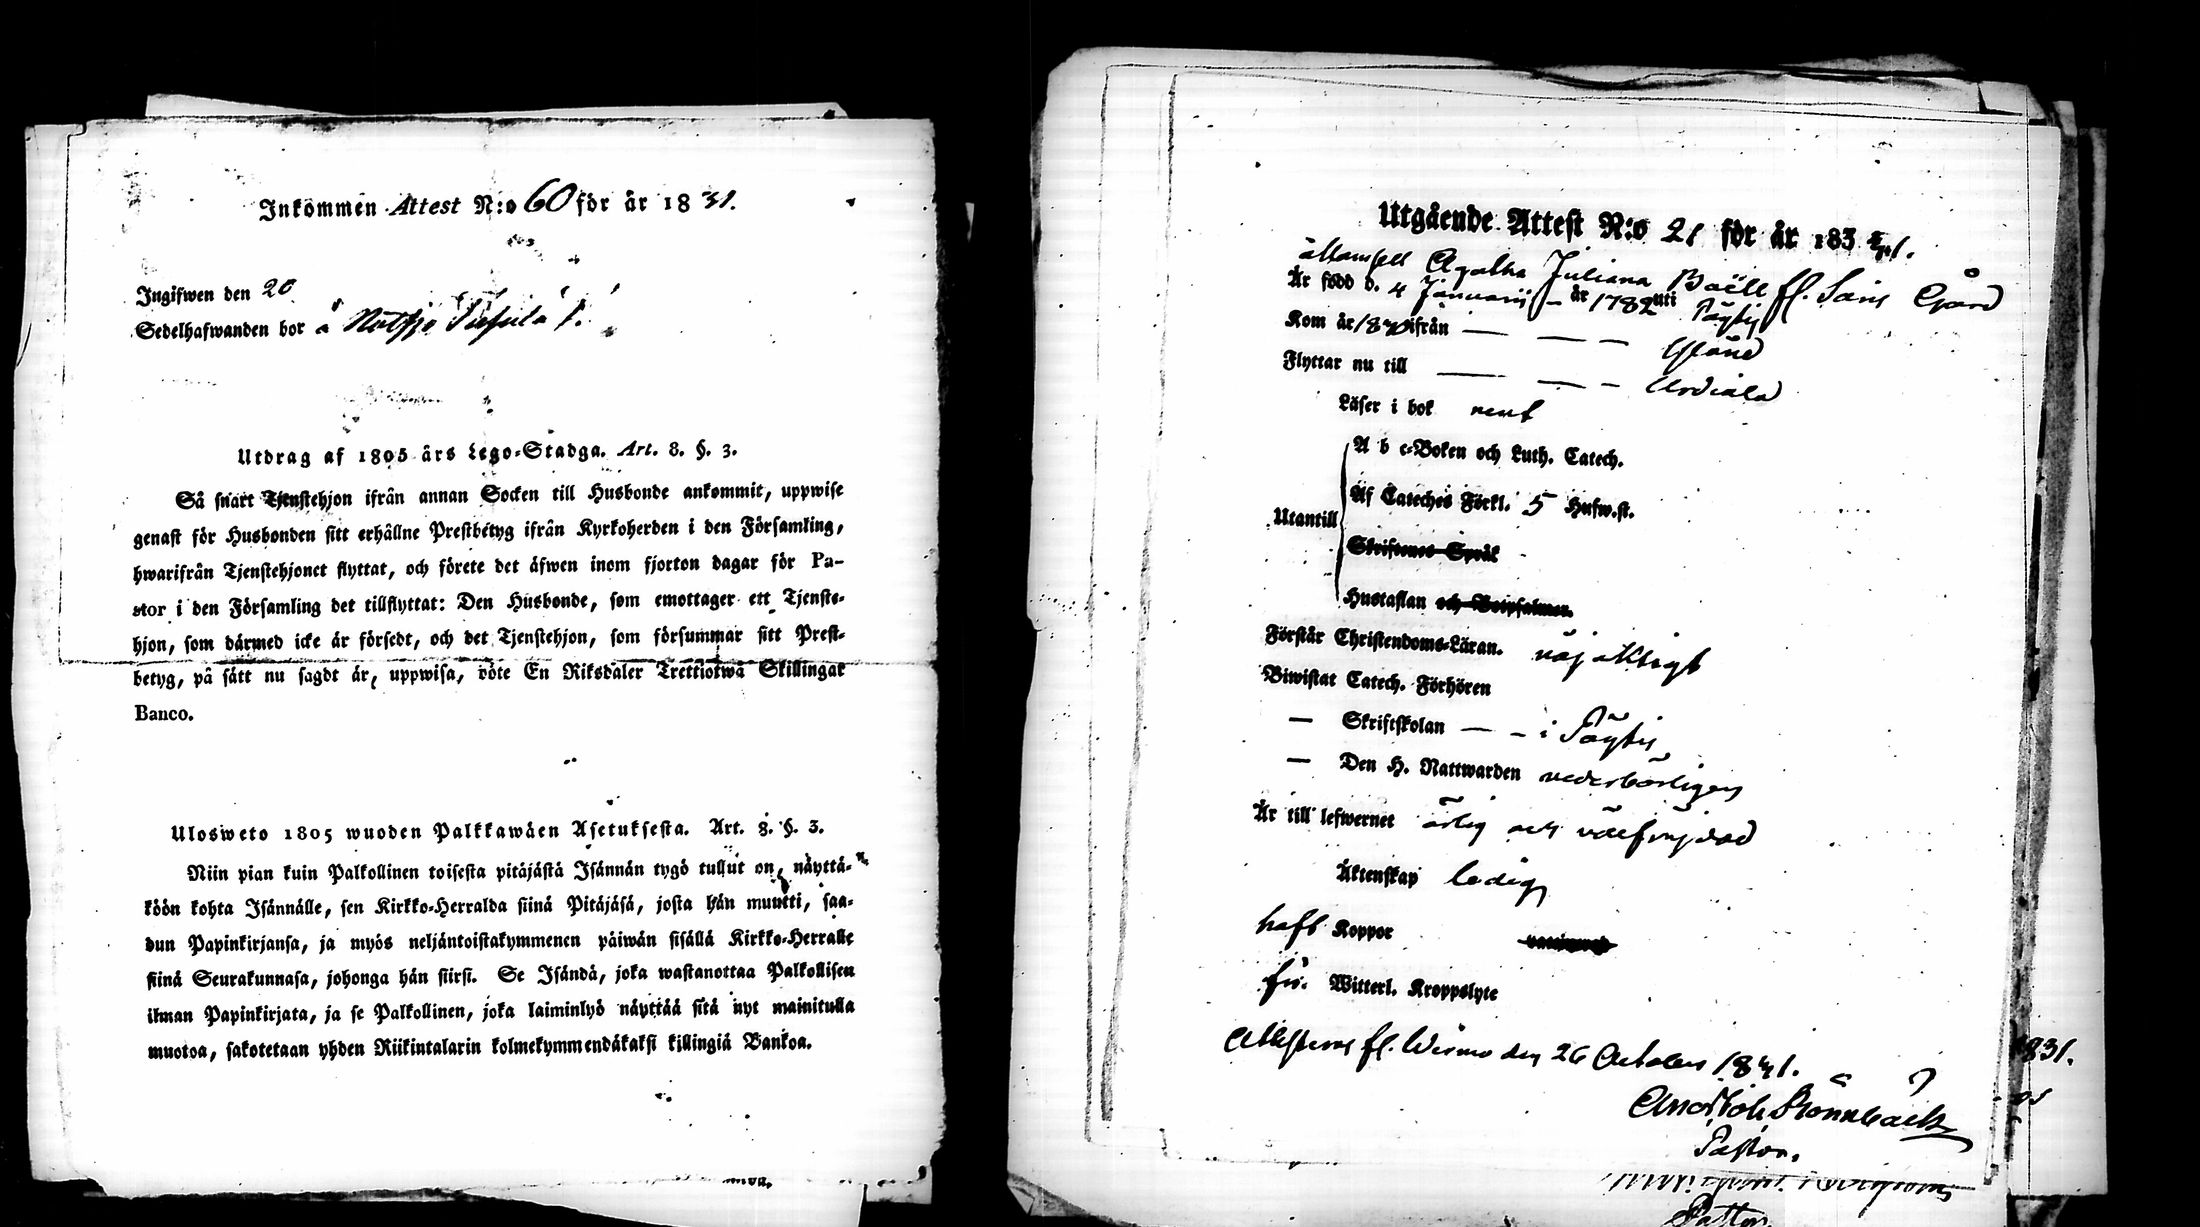 Inkommen Attest N:o 60 för år 1831.
Ingifwen den 20
Sedelhafwanden bor å
Utdrag af 1805 års Lego-Stadga. Art. 8. §. 3.
Så snart Tjenstehjon ifrån annan Socken till Husbonde ankommit, uppwise
genast för Husbonden sitt erhållne Prestbetyg ifrån Kyrkoherden i den Församling,
hwarifrån Tjenstehjonet flyttat, och förete det äfwen inom fjorton dagar för Pa-
stor i den Församling det tillflyttat: Den Husbonde, som emottager ett Tjenste-
hjon, som därmed icke är försedt, och det Tjenstehjon, som försummar sitt Prest-
betyg, på sätt nu sagdt är, uppwisa, böte En Riksdaler Trettiotwå Skillingar
Banco.
Ulosweto 1805 wuoden Palkkawäen Asetuksesta. Art. 8. §. 3.
Niin pian kuin Palkollinen toisesta pitäjästä Isännän tygö tullut on, näyttä-
köön kohta Isännälle, sen Kirkko-Herralda siinä Pitäjäsä, josta hän muutti, saa-
dun Papinkirjansa, ja myös neljäntoistakymmenen päiwän sisällä Kirkko-Herralle
siinä Seurakunnasa, johonga hän siirsi. Se Isändä, joka wastanottaa Palkollisen
ilman Papinkirjata, ja se Palkollinen, joka laiminlyö näyttää sitä nyt mainitulla
muotoa, sakotetaan yhden Riikintalarin kolmekymmendäkaksi killingiä Bankoa.
Utgående Attest N:o 21 för år 1831.
Mamsell Agatha Juliana Boëll fr. Saris Gård
Är född d. 4 Januarii – år 1782 uti Pöytis
Kom år 1830 ifrån — — — Yläne
Flyttar nu till — — – Urdiala
Läser i bok rent
Utantill
A b c-Boken och Luth. Catech.
Af Cateches Förkl. 5 Hufw.st.
Skriftenes Språk
Hustaflan och Botpsalmer.
Förstår Christendoms-Läran. nöjaktigt
Biwistat Catech. Förhören
— Skriftskolan — – i Pöytis
— Den H. Nattwarden vederbörligen
Är till lefwernet ärlig och välfrejdad
Äktenskap ledig
haft Koppor
fri. Witterl. Kroppslyte
Attesteras fr. Wirmo den 26 October 1831.
Rönnback
Pastor.
1831.
Pastor